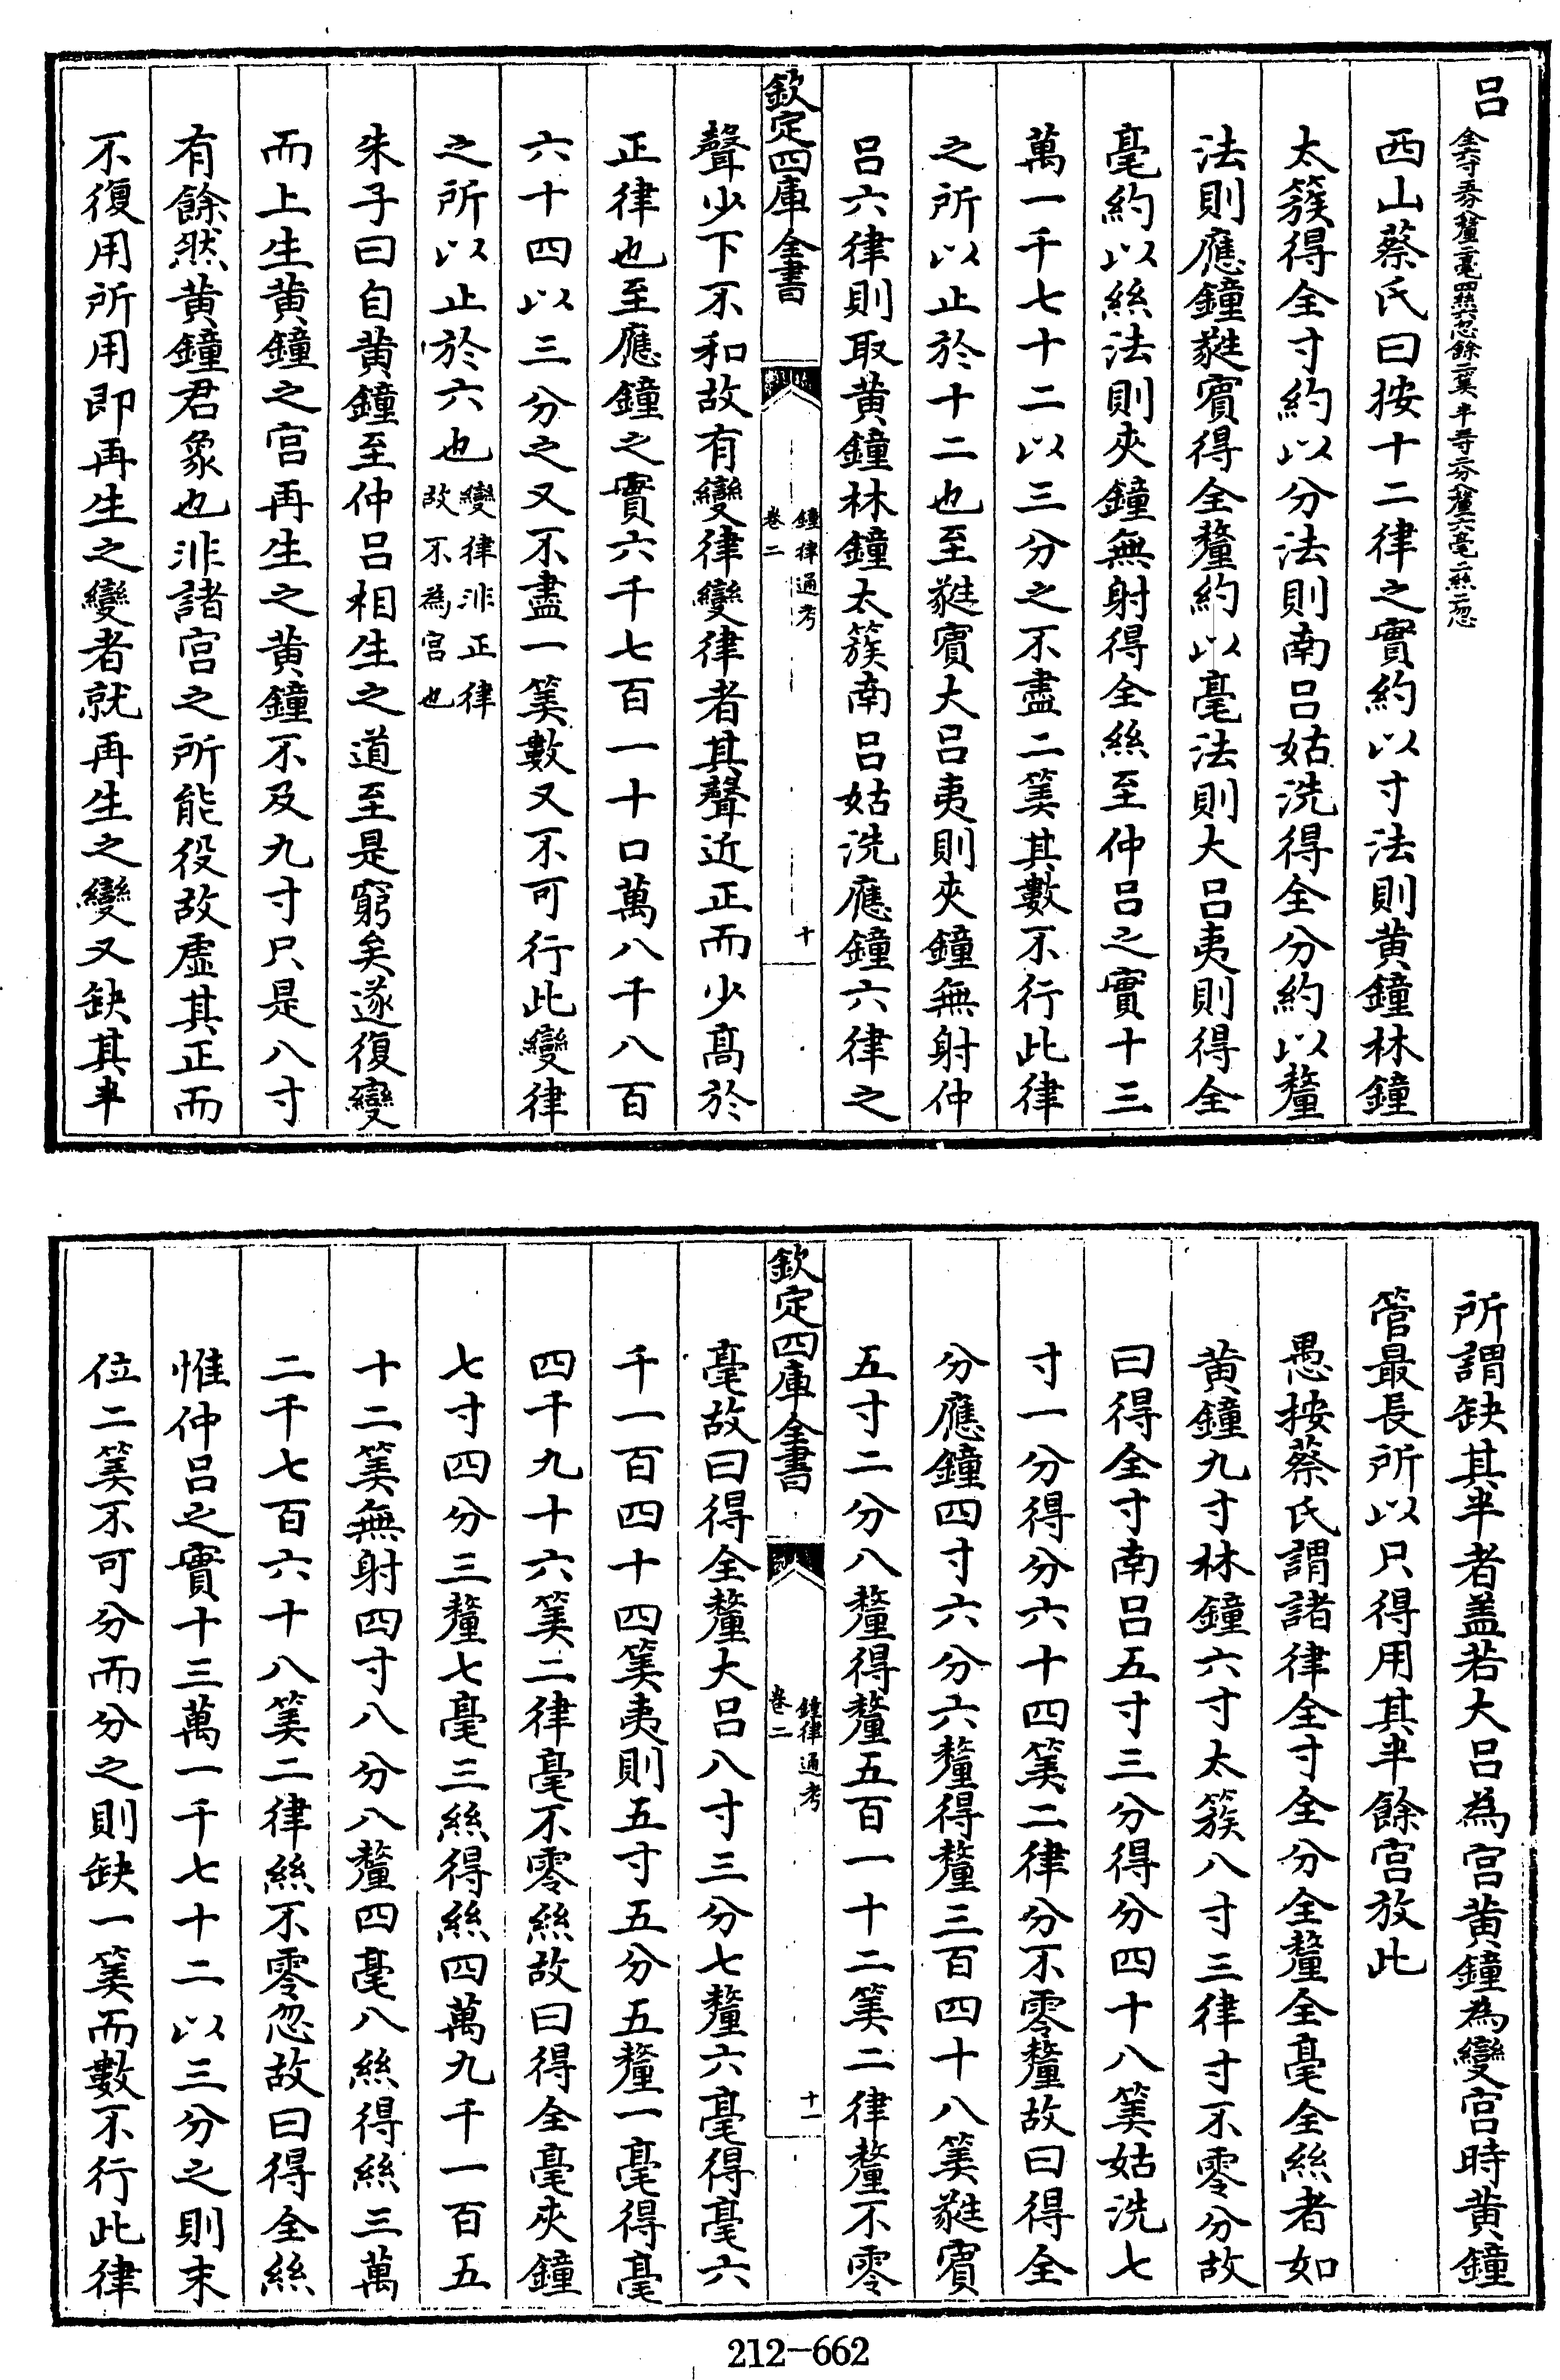 呂全六寸五分八釐三毫四絲六忽餘二算半三寸二分八釐六毫二絲二忽
西山蔡氏曰按十二律之實約以寸法則黃鐘林鐘
太簇得全寸約以分法則南呂姑洗得全分約以釐
法則應鐘蕤賓得全釐約以毫法則大呂夷則得全
毫約以絲法則夾鐘無射得全絲至仲呂之實十三
萬一千七十二以三分之不盡二筭其數不行此律
之所以止於十二也至蕤賓大呂夷則夾鐘無射仲
呂六律則取黃鐘林鐘太簇南呂姑洗應鐘六律之
欽定四庫全書
鐘律通考
卷二
十
聲少下不和故有變律變律者其聲近正而少高於
正律也至應鐘之實六千七百一十口萬八千八百
六十四以三分之又不盡一筭數又不可行此變律
之所以止於六也變律非正律故不為宮也
朱子曰自黃鐘至仲呂相生之道至是窮矣遂復變
而上生黃鐘之宮再生之黃鐘不及九寸只是八寸
有餘然黃鐘君象也非諸宮之所能役故虛其正而
不復用所用即再生之變者就再生之變又缺其半
所謂缺其半者盖若大呂為宮黃鐘為變宮時黃鐘
管最長所以只得用其半餘宮放此
愚按蔡氏謂諸律全寸全分全釐全毫全絲者如
黃鐘九寸林鐘六寸太簇八寸三律寸不零分故
曰得全寸南呂五寸三分得分四十八筭姑洗七
寸一分得分六十四筭二律分不零釐故曰得全
分應鐘四寸六分六釐得釐三百四十八筭蕤賓
五寸二分八釐得釐五百一十二筭二律釐不零
欽定四庫全書
鐘律通考
卷二
十一
毫故曰得全釐大呂八寸三分七釐六毫得毫六
千一百四十四筭夷則五寸五分五釐一毫得毫
四千九十六筭二律毫不零絲故曰得全毫夾鐘
七寸四分三釐七毫三絲得絲四萬九千一百五
十二筭無射四寸八分八釐四毫八絲得絲三萬
二千七百六十八筭二律絲不零忽故曰得全絲
惟仲呂之實十三萬一千七十二以三分之則末
位二筭不可分而分之則缺一筭而數不行此律
212-662